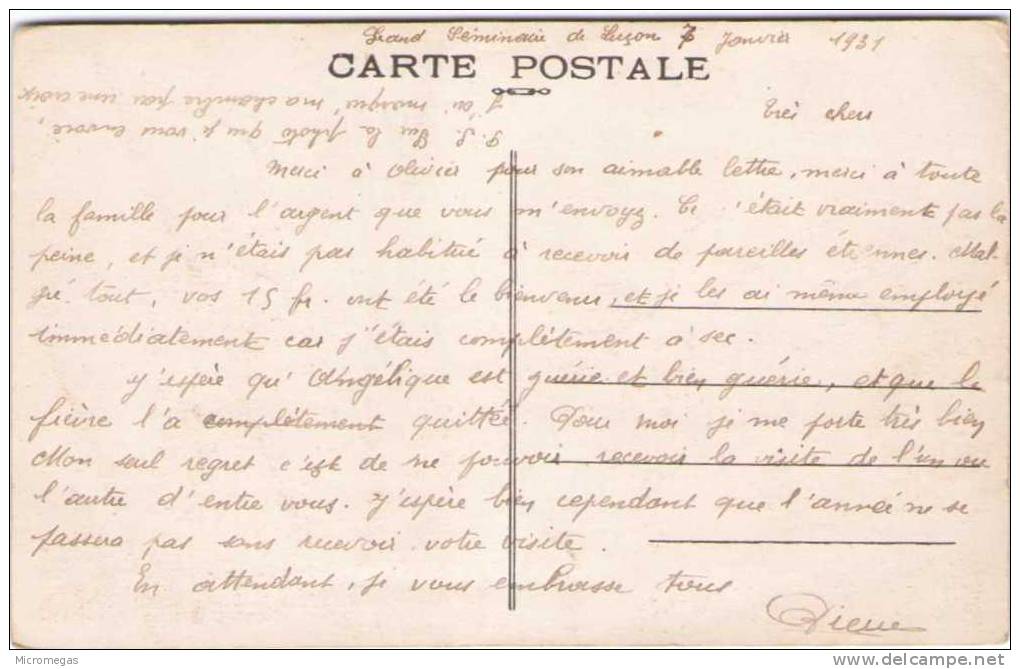 Grand Séminaire de Luçon 7 Janvier 1931
CARTE POSTALE
P.S. Sur la photo que je vous envoie,
j'ai marqué ma chambre par une croix
Très chers
Merci à Olivier pour son aimable lettre, merci à toute
la famille pour l'argent que vous m'envoyez. Ce n'était vraiment pas la
peine, et je n'étais pas habitué à recevoir de pareilles étrennes. Mal-
gré tout, vos 15 fr. ont été le bienvenu, et je les ai même employé
immédiatement car j'étais complètement à sec.
J'espère qu'Angélique est guérie et bien guérie, et que la
fièvre l'a complètement quittée. Pour moi je me porte très bien
Mon seul regret c'est de ne pouvoir recevoir la visite de l'un ou
l'autre d'entre vous. J'espère bien cependant que l'année ne se
passera pas sans recevoir votre visite.
En attendant, je vous embrasse tous
Pierre
Micromegas
delcampe.net